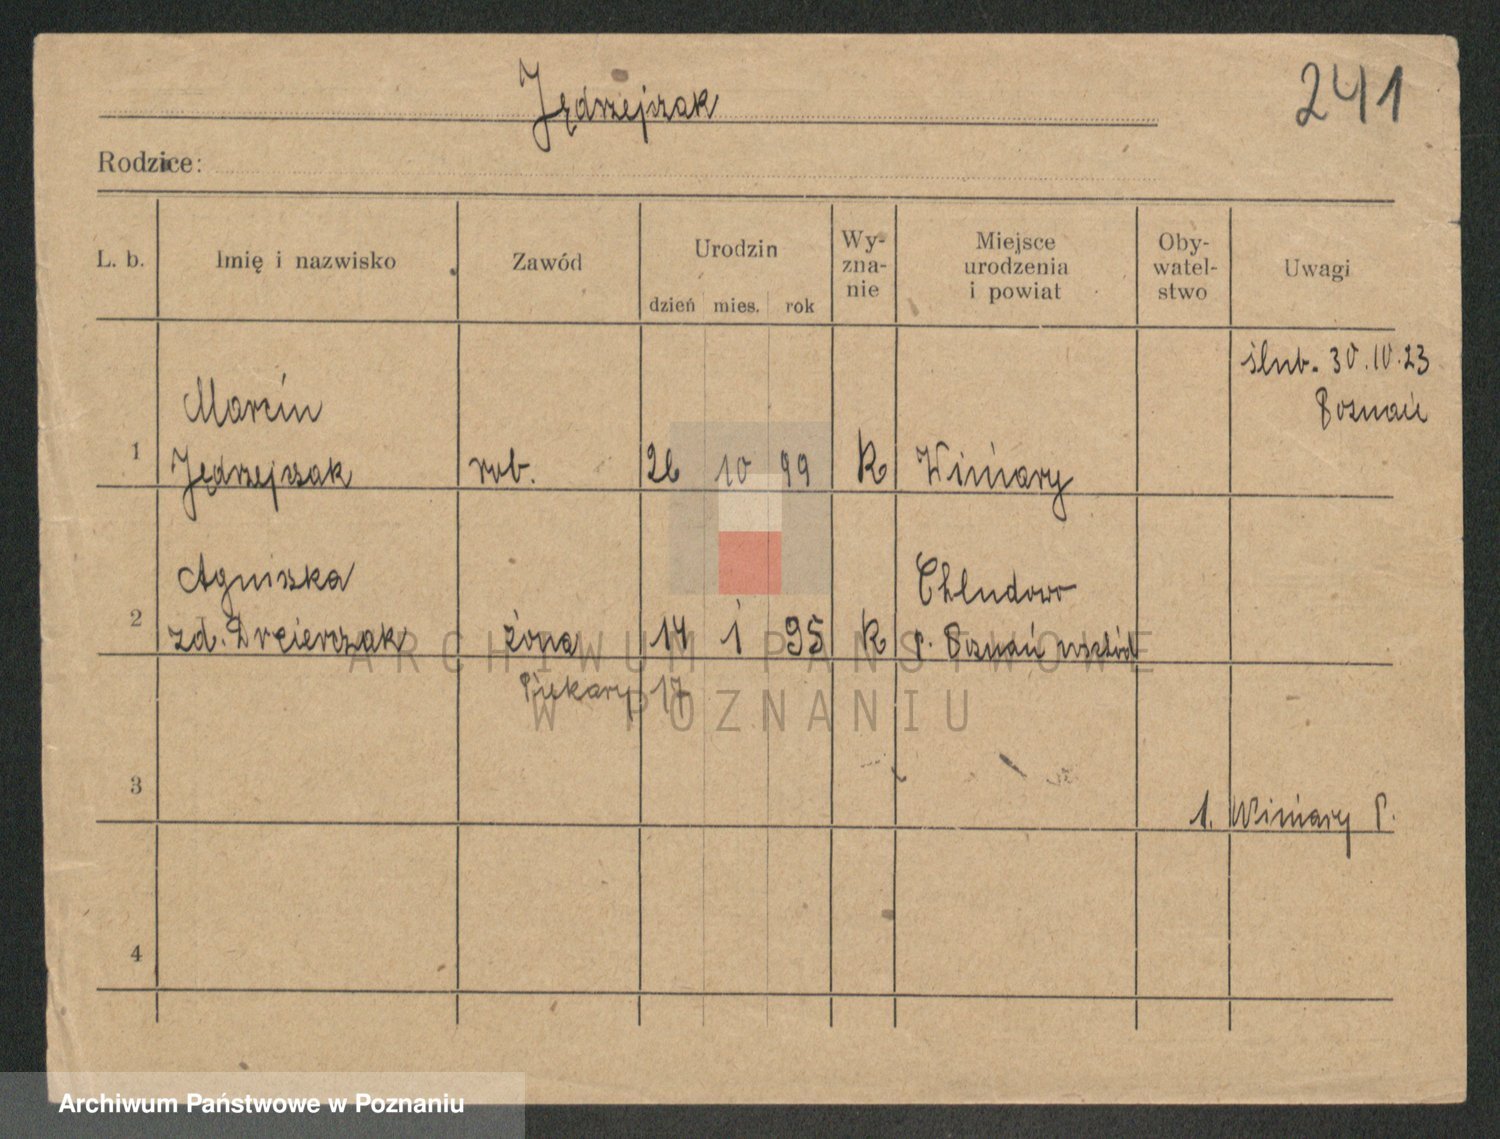 241
Jędrzejczak
Rodzice:
L. b. Imię i nazwisko Zawód Urodzin dzień mies. rok Wy-zna-nie Miejsce urodzenia i powiat Oby-watel-stwo Uwagi
ślub. 30.10.23
Poznań
Marcin
1 Jędrzejczak rob. 26 10 99 K Winiary
Agniszka Chludowo
2 zd. żona 14 1 95 K p. Poznań wschód
Piekary 17
3
1. Winiary P.
4
ARCHIWUM PAŃSTWOWE
W POZNANIU
Archiwum Państwowe w Poznaniu